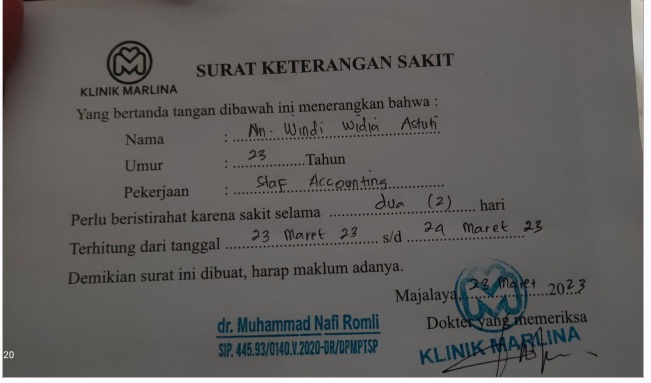 KLINIK MARLINA
SURAT KETERANGAN SAKIT
Yang bertanda tangan dibawah ini menerangkan bahwa :
Nama : Nn. Windi Widia Astuti
Umur : 23 Tahun
Pekerjaan : Staf Accounting
Perlu beristirahat karena sakit selama dua (2) hari
Terhitung dari tanggal 23 Maret 23 s/d 24 Maret 23
Demikian surat ini dibuat, harap maklum adanya.
Majalaya, 23 Maret 2023
dr. Muhammad Nafi Romli
Dokter yang memeriksa
SIP. 445.93/0140.V.2020-DR/DPMPTSP
KLINIK MARLINA
20